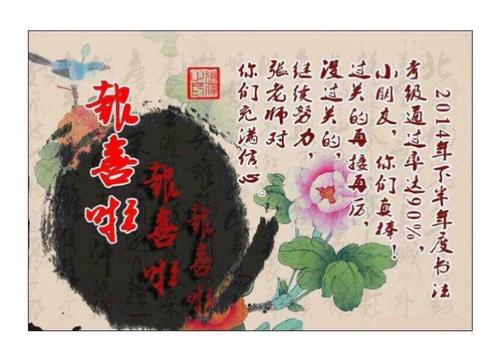 2014年下半年度书法
考级通过率达90%，
小朋友，你们真棒！
过关的再接再厉，
没过关的，
继续努力，
张老师对
你们充满信心。
報喜啦
報喜啦
報喜啦